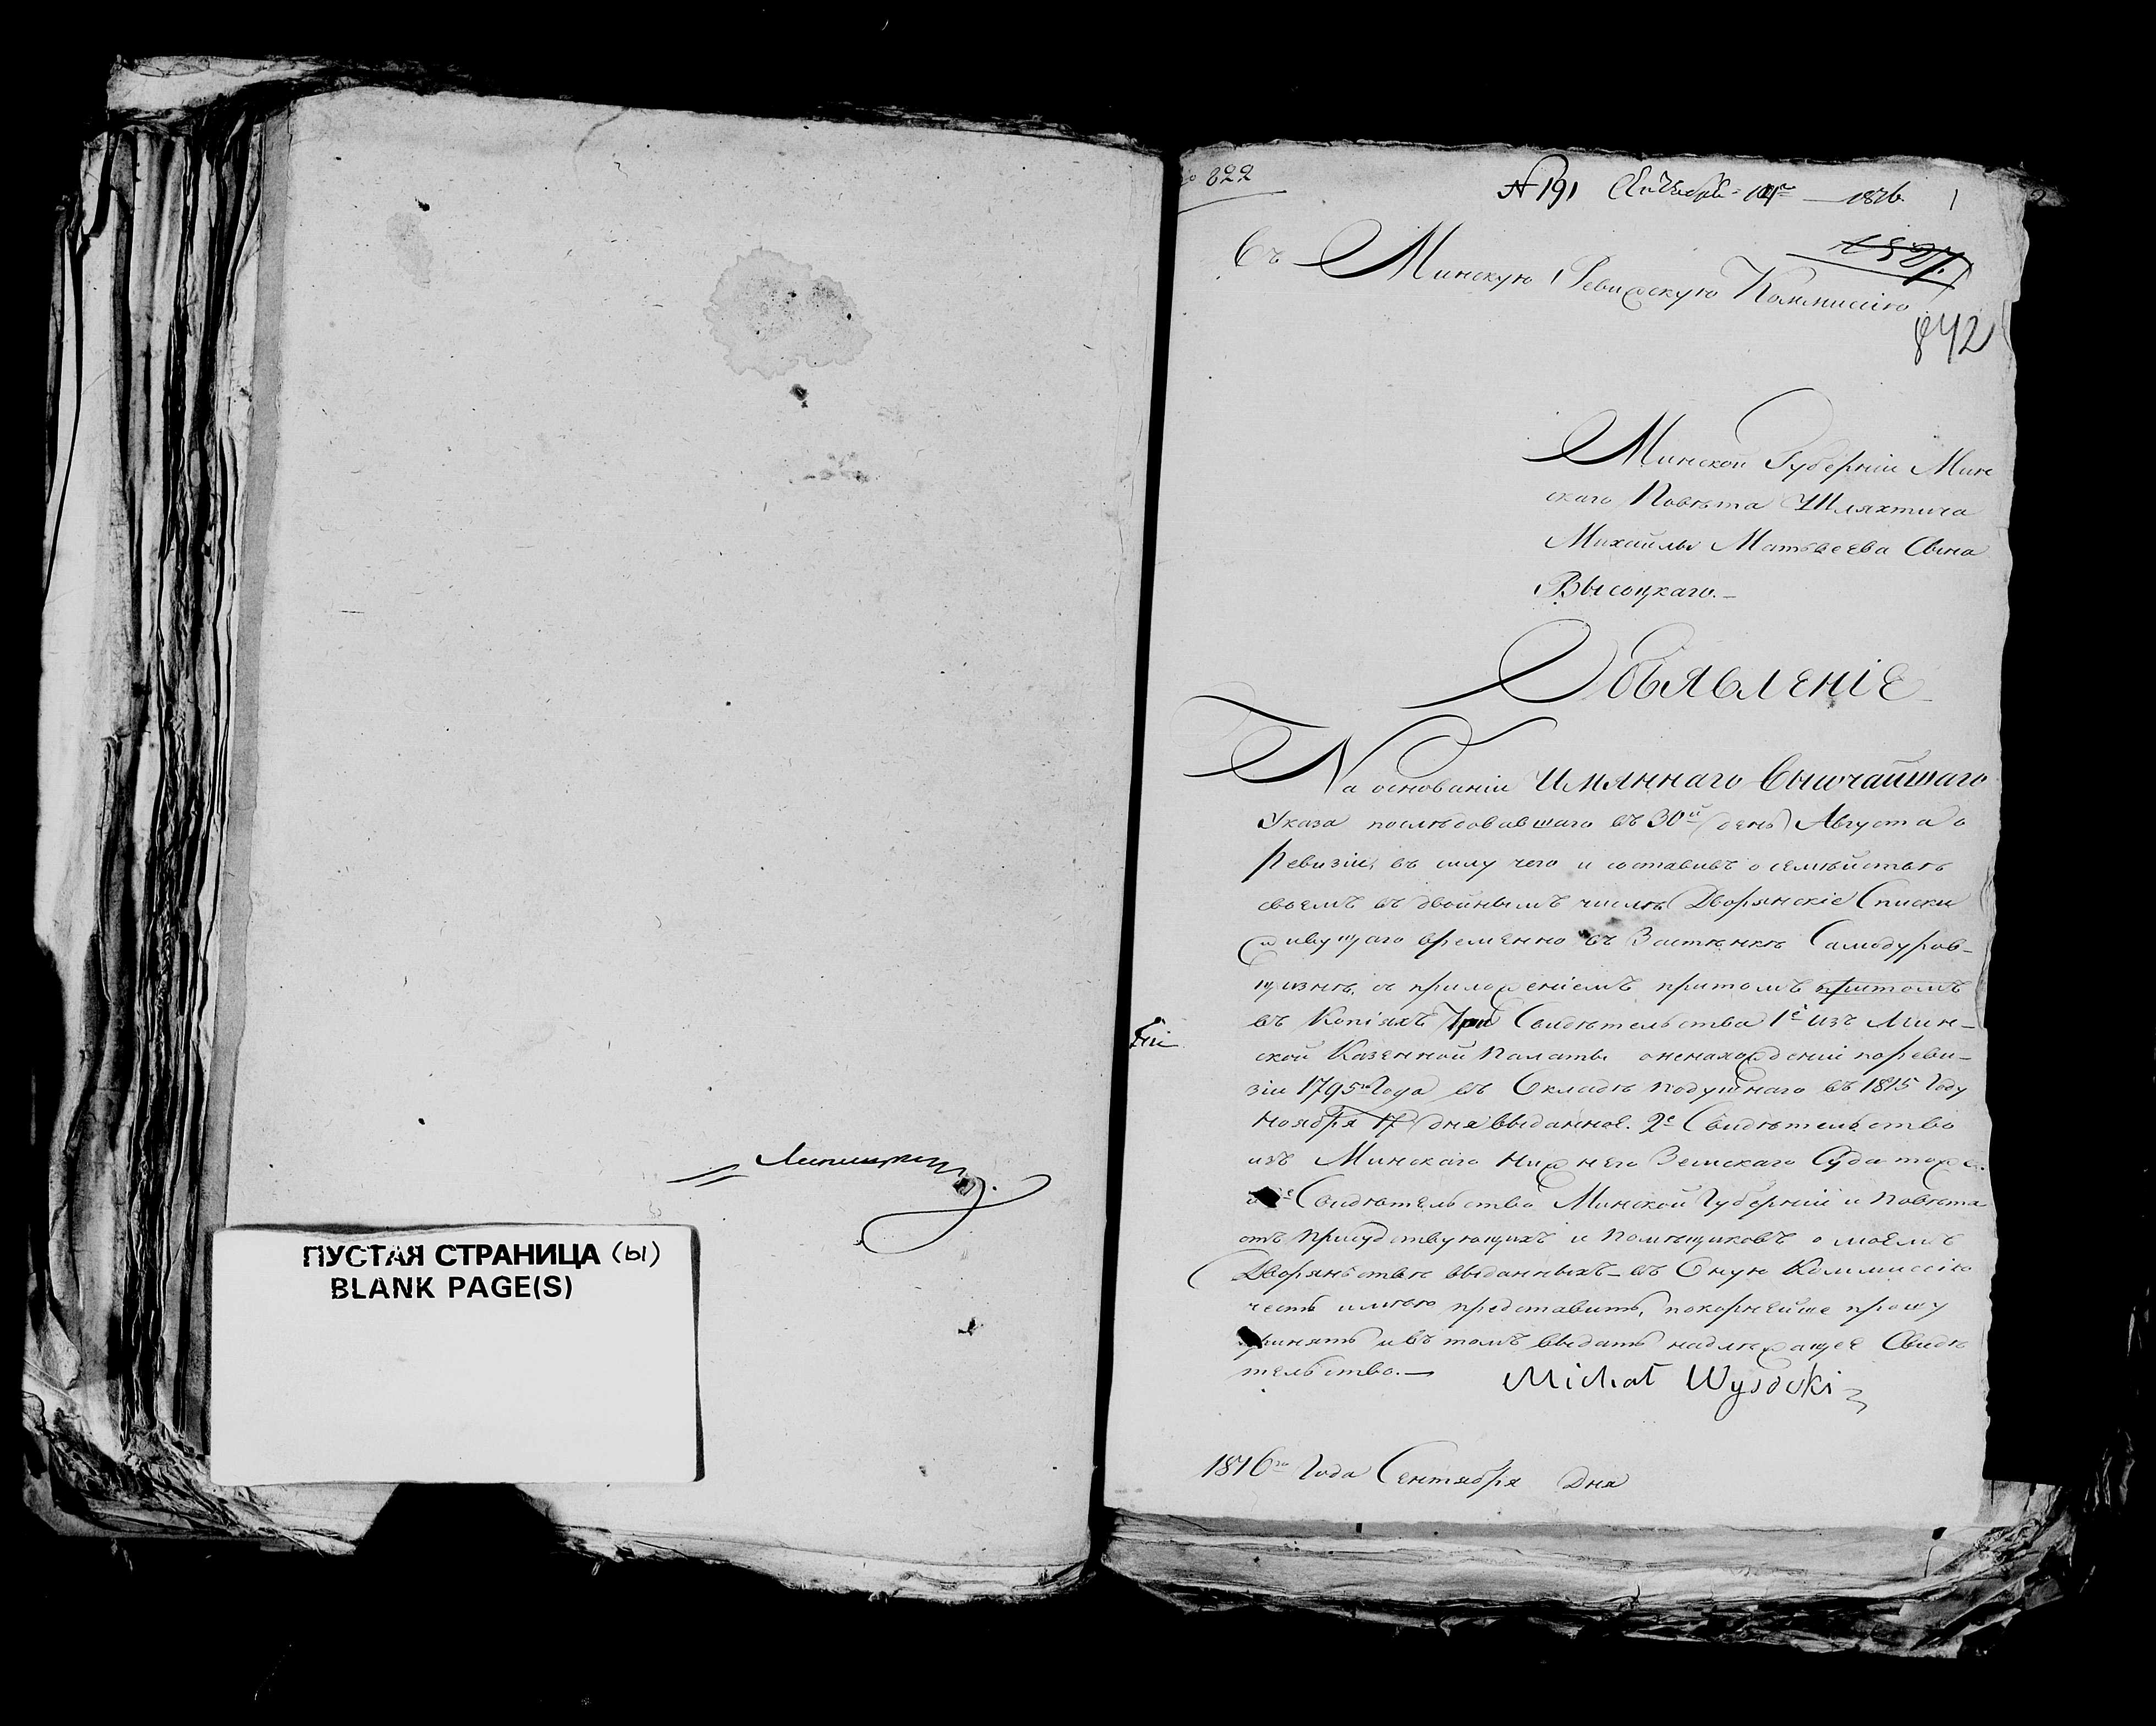 Липницкий
ПУСТАЯ СТРАНИЦА (ы)
BLANK PAGE(S)
822
№ 191 Сентября 14го 1816
1
Въ Минскую Ревижскую Коммисію
842
Минской Губерніи Мин
скаго Повѣта Шляхтича
Михайлы Матвѣева Сына
Высоцкаго.-
Объявленіе
На основаніи Имяннаго Высочайшаго
Указа послѣдовавшаго въ 30й день Августа о
Ревизіи, въ силу чего и составивъ о семѣйствѣ
своемъ въ двойнымъ числѣ Дворянскіе Списки
живущаго временно въ Застѣнкѣ Самодуров-
щизнѣ, съ приложеніемъ притомъ притомъ
въ Копіяхъ Три Свидѣтельства 1е изъ Мин-
ской Казенной Палаты оненахожденіи поревы-
зіи 1795го Года въ Окладѣ подушнаго въ 1815 Году
Ноября 17 дня выданное. 2е Свидѣтельство
изъ Минскаго Нижнего Земскаго Суда тоже.
Свидѣтельство Минской Губерніи и Повѣта
отъ присудствующихъ и Помѣщиковъ о моемъ
Дворянствѣ выданныхъ- въ Оную Коммиссію
честь имѣю представить, покорнѣйше прошу
принять ивъ томъ выдать надлежащее Свидѣ
тельство.—
Michał Wysocki
1816го Года Сентября Дня